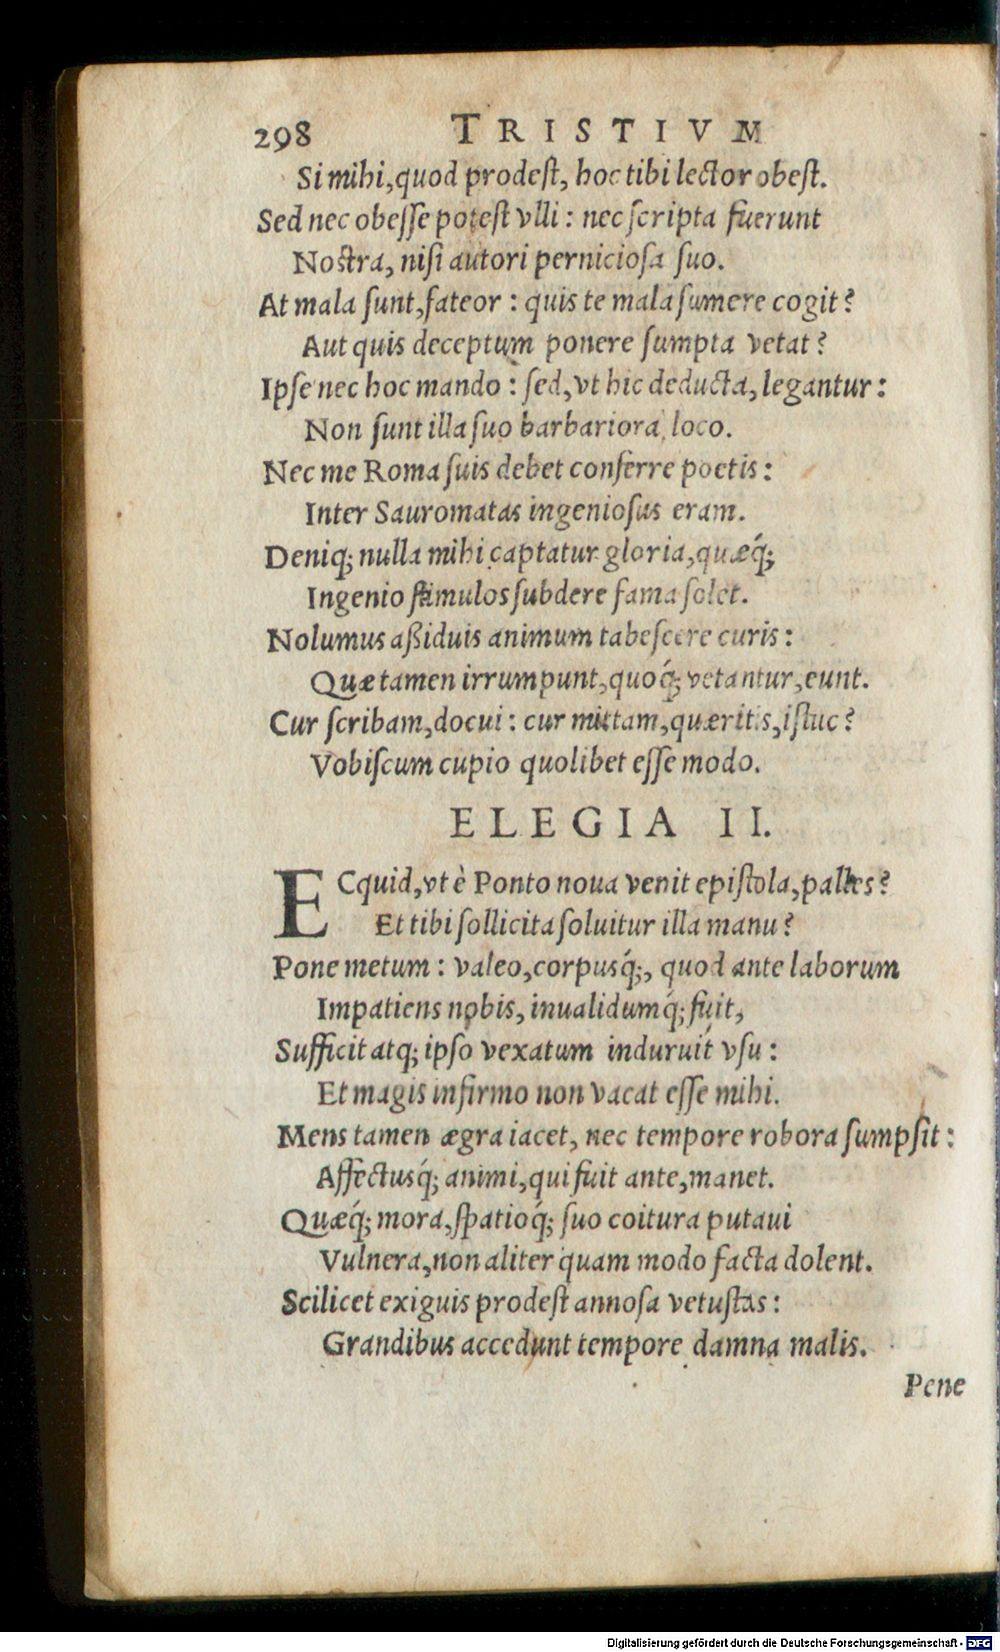 298 TRISTIVM
Si mihi, quod prodeſt, hoc tibi lector obeſt.
Sed nec obeſſe poteſt vlli : nec ſcripta fuerunt
Noſtra, niſi autori pernicioſa ſuo.
At mala ſunt, fateor : quis te mala ſumere cogit?
Aut quis deceptum ponere ſumpta vetat?
Ipſe nec hoc mando : ſed, vt hic deducta, legantur :
Non ſunt illa ſuo barbariora loco.
Nec me Roma ſuis debet conferre poetis :
Inter Sauromatas ingenioſus eram.
Deniq; nulla mihi captatur gloria, quæq́;
Ingenio ſtimulos ſubdere fama ſolet.
Nolumus aßiduis animum tabeſcere curis :
Quæ tamen irrumpunt, quoq́; vetantur, eunt.
Cur ſcribam, docui : cur mittam, quæritis, iſtuc?
Vobiſcum cupio quolibet eſſe modo.
ELEGIA II.
ECquid, vt è Ponto noua venit epiſtola, palles?
Et tibi ſollicita ſoluitur illa manu?
Pone metum : valeo, corpusq́;, quod ante laborum
Impatiens nobis, inualidumq́; fuit,
Sufficit atq; ipſo vexatum induruit vſu :
Et magis infirmo non vacat eſſe mihi.
Mens tamen ægra iacet, nec tempore robora ſumpſit :
Affectusq́; animi, qui fuit ante, manet.
Quæq́; mora, ſpatioq́; ſuo coitura putaui
Vulnera, non aliter quam modo facta dolent.
Scilicet exiguis prodeſt annoſa vetuſtas :
Grandibus accedunt tempore damna malis.
Pene
Digitalisierung gefördert durch die Deutsche Forschungsgemeinschaft - DFG